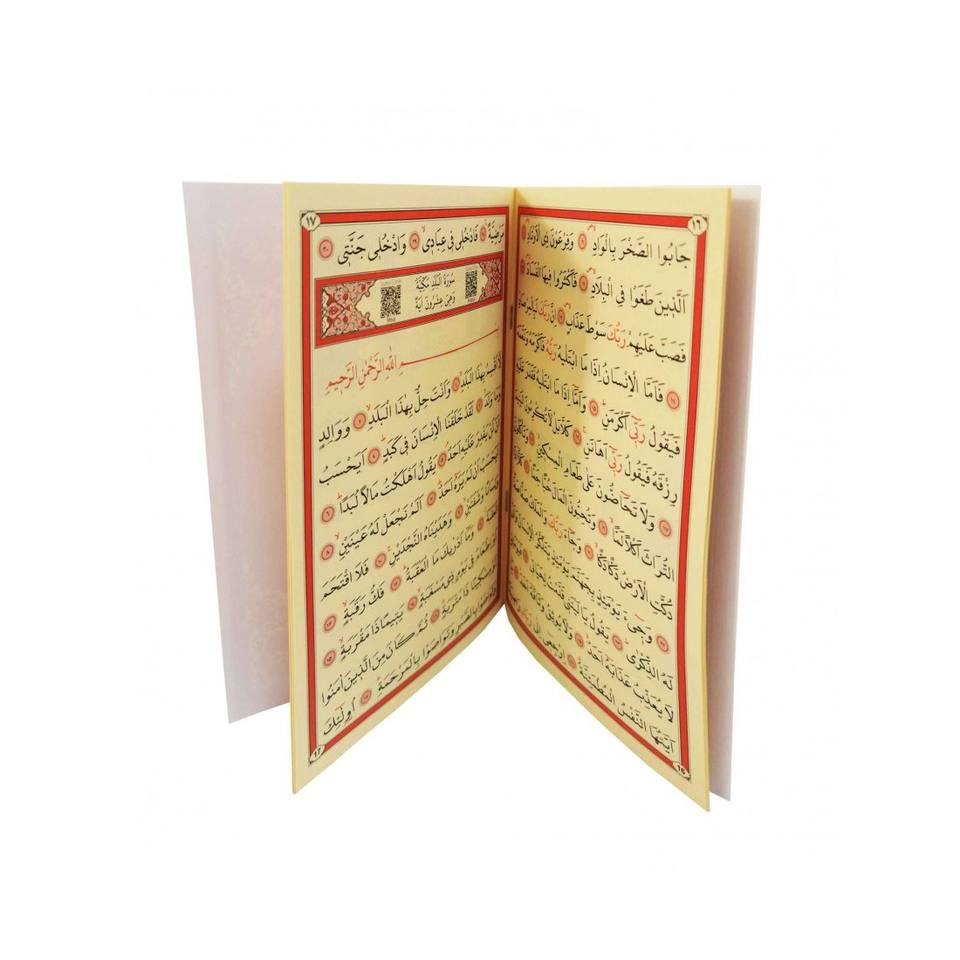 ١٦
جَابُوا الصَّخْرَ بِالْوَادِۙ ﴿٩﴾ وَفِرْعَوْنَ ذِي الْاَوْتَادِۙ ﴿١٠﴾
اَلَّذِينَ طَغَوْا فِي الْبِلَادِۙ ﴿١١﴾ فَاَكْثَرُوا فِيهَا الْفَسَادَۙ ﴿١٢﴾
فَصَبَّ عَلَيْهِمْ رَبُّكَ سَوْطَ عَذَابٍۚ ﴿١٣﴾ اِنَّ رَبَّكَ لَبِالْمِرْصَادِۜ
﴿١٤﴾ فَاَمَّا الْاِنْسَانُ اِذَا مَا ابْتَلٰيهُ رَبُّهُ فَاَكْرَمَهُ وَنَعَّمَهُ
فَيَقُولُ رَبِّٓي اَكْرَمَنِۜ ﴿١٥﴾ وَاَمَّٓا اِذَا مَا ابْتَلٰيهُ فَقَدَرَ عَلَيْهِ
رِزْقَهُ فَيَقُولُ رَبِّٓي اَهَانَنِۚ ﴿١٦﴾ كَلَّا بَلْ لَا تُكْرِمُونَ الْيَتِيمَۙ
﴿١٧﴾ وَلَا تَحَٓاضُّونَ عَلٰى طَعَامِ الْمِسْكِينِۙ ﴿١٨﴾ وَتَأْكُلُونَ
التُّرَاثَ اَكْلًا لَمًّاۙ ﴿١٩﴾ وَتُحِبُّونَ الْمَالَ حُبًّا جَمًّاۜ ﴿٢٠﴾ كَلَّٓا
دُكَّتِ الْاَرْضُ دَكًّا دَكًّاۙ ﴿٢١﴾ وَجَٓاءَ رَبُّكَ وَالْمَلَكُ صَفًّا
﴿٢٢﴾ وَجِيءَ يَوْمَئِذٍ بِجَهَنَّمَ يَوْمَئِذٍ يَتَذَكَّرُ الْاِنْسَانُ
لَهُ الذِّكْرٰىۜ ﴿٢٣﴾ يَقُولُ يَا لَيْتَنِي قَدَّمْتُ لِحَيَاتِيۚ
لَا يُعَذِّبُ عَذَابَهُٓ اَحَدٌۙ ﴿٢٥﴾ وَلَا يُوثِقُ وَثَاقَهُٓ
اَيَّتُهَا النَّفْسُ الْمُطْمَئِنَّةُۗ ﴿٢٧﴾ اِرْجِعِٓي اِلٰى
١٥
١٧
مَرْضِيَّةًۚ ﴿٢٨﴾ فَادْخُلِي فِي عِبَادِيۙ ﴿٢٩﴾ وَادْخُلِي جَنَّتِي ﴿٣٠﴾
سُورَةُ الْبَلَدِ مَكِّيَّةٌ
وَهِيَ عِشْرُونَ اٰيَةً
بِسْمِ اللّٰهِ الرَّحْمٰنِ الرَّحِيمِ
لَٓا اُقْسِمُ بِهٰذَا الْبَلَدِۙ ﴿١﴾ وَاَنْتَ حِلٌّ بِهٰذَا الْبَلَدِۙ ﴿٢﴾ وَوَالِدٍ
وَمَا وَلَدَۙ ﴿٣﴾ لَقَدْ خَلَقْنَا الْاِنْسَانَ فِي كَبَدٍۜ ﴿٤﴾ اَيَحْسَبُ
اَنْ لَنْ يَقْدِرَ عَلَيْهِ اَحَدٌۢ ﴿٥﴾ يَقُولُ اَهْلَكْتُ مَالًا لُبَدًاۜ ﴿٦﴾
اَيَحْسَبُ اَنْ لَمْ يَرَهُٓ اَحَدٌۜ ﴿٧﴾ اَلَمْ نَجْعَلْ لَهُ عَيْنَيْنِۙ ﴿٨﴾
وَلِسَانًا وَشَفَتَيْنِۙ ﴿٩﴾ وَهَدَيْنَاهُ النَّجْدَيْنِۚ ﴿١٠﴾ فَلَا اقْتَحَمَ
الْعَقَبَةَۘ ﴿١١﴾ وَمَٓا اَدْرٰيكَ مَا الْعَقَبَةُۜ ﴿١٢﴾ فَكُّ رَقَبَةٍۙ ﴿١٣﴾
اِطْعَامٌ فِي يَوْمٍ ذِي مَسْغَبَةٍۙ ﴿١٤﴾ يَتِيمًا ذَا مَقْرَبَةٍۙ ﴿١٥﴾
مِسْكِينًا ذَا مَتْرَبَةٍۜ ﴿١٦﴾ ثُمَّ كَانَ مِنَ الَّذِينَ اٰمَنُوا
وَتَوَاصَوْا بِالصَّبْرِ وَتَوَاصَوْا بِالْمَرْحَمَةِۜ ﴿١٧﴾ اُو۬لٰٓئِكَ